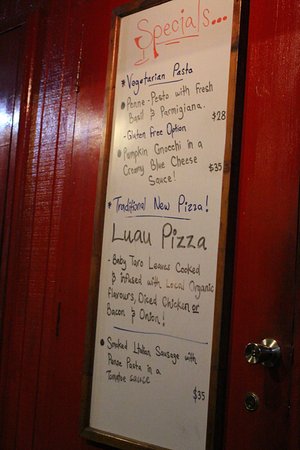 Specials...
* Vegetarian Pasta
• Penne - Pesto with Fresh
Basil & Parmigiana. $28
- Gluten Free Option
• Pumpkin Gnocchi in a
Creamy Blue Cheese $35
Sauce!
* Traditional New Pizza!
Luau Pizza
- Baby Taro Leaves Cooked
& infused with Local Organic
flavours, Diced Chicken or
Bacon & Onion!
• Smoked Italian Sausage with
Penne Pasta in a
Tomatoe sauce
$35